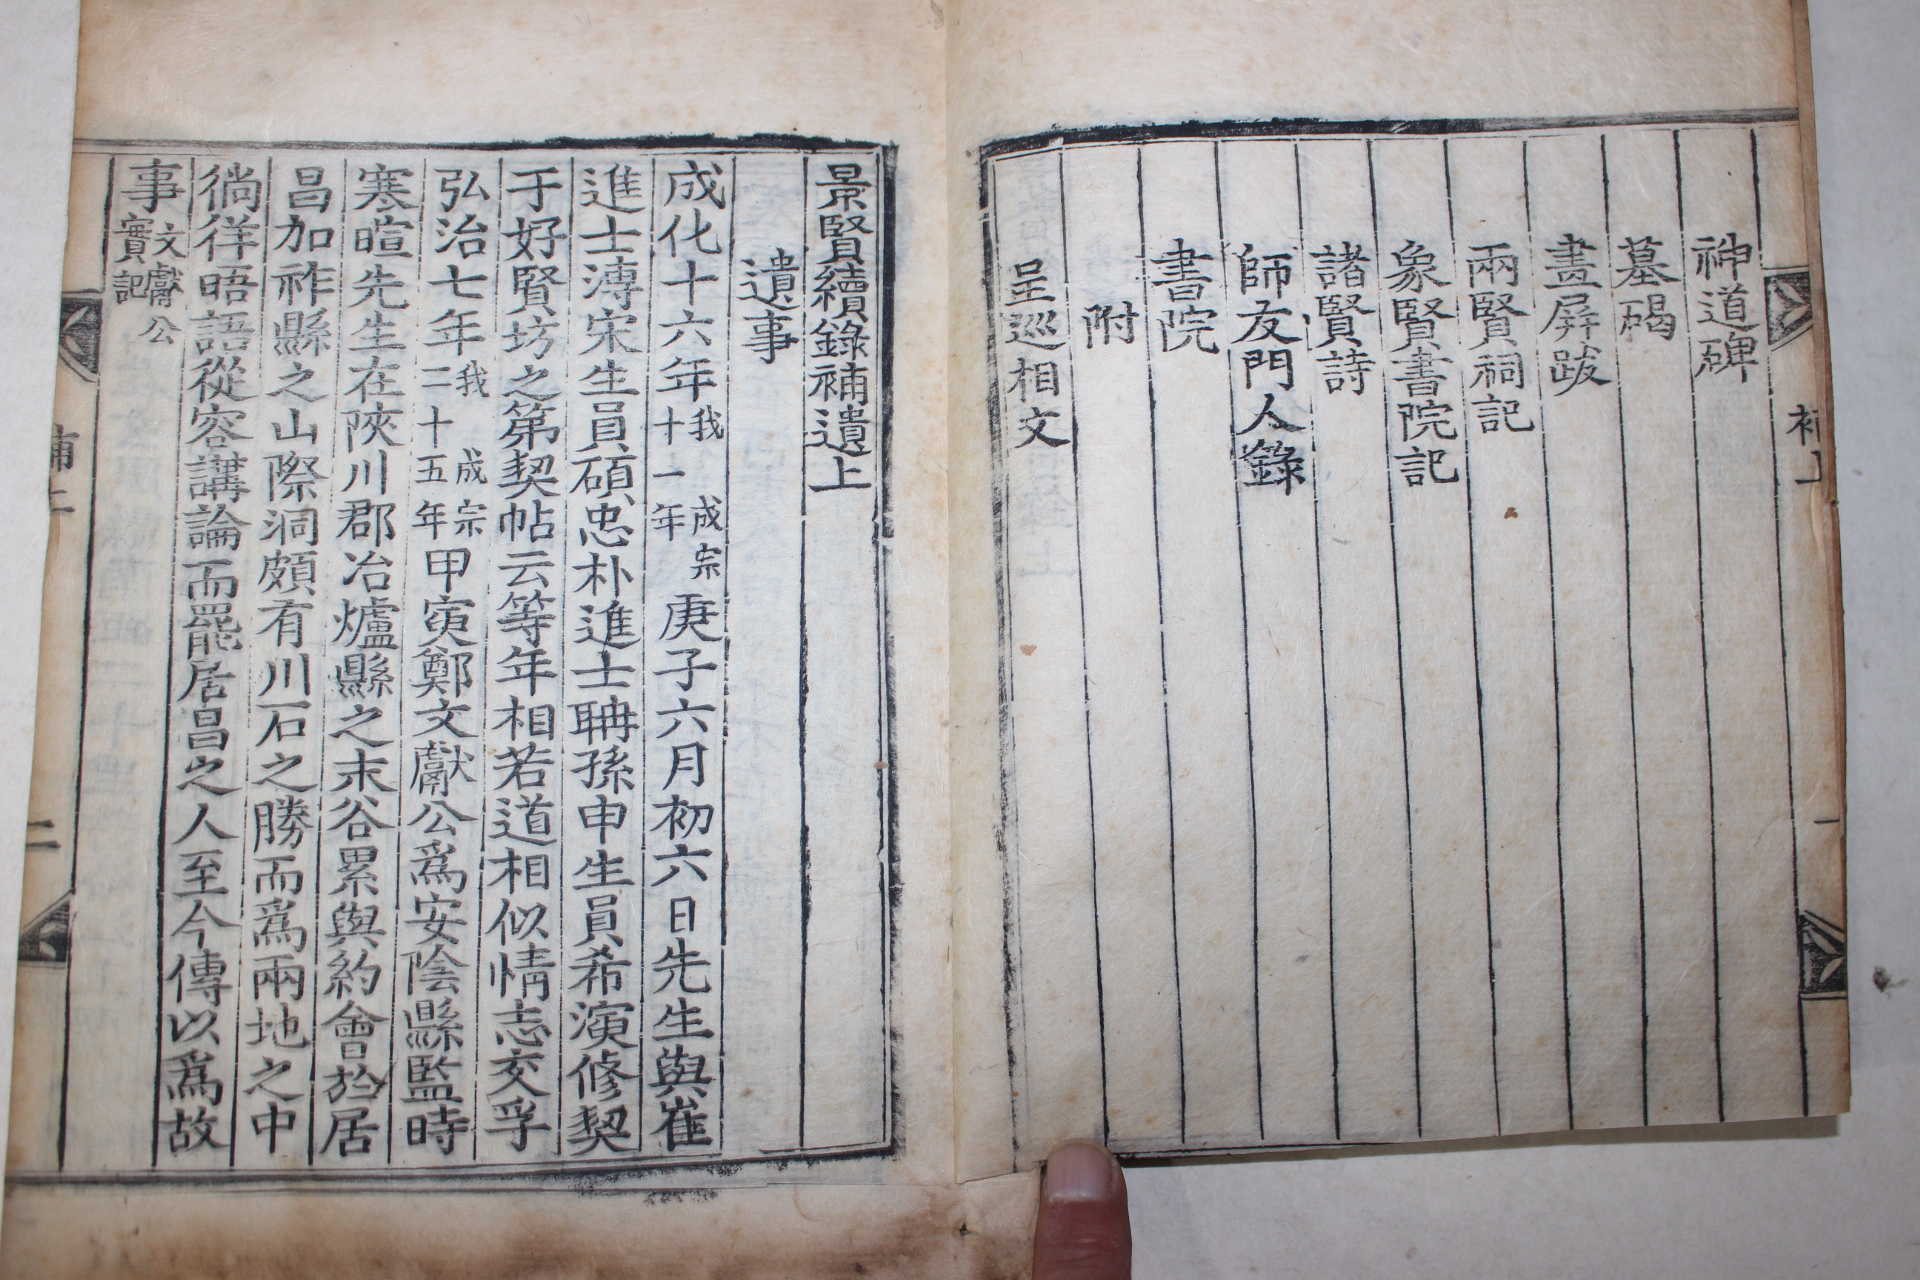 神道碑
墓碣
畫屛跋
兩賢祠記
象賢書院記
諸賢詩
師友門人錄
書院
附
呈巡相文
景賢續錄補遺上
遺事
成化十六年我成宗十一年庚子六月初六日先生與崔
進士溥宋生員碩忠朴進士聃孫申生員希演修契
于好賢坊之第契帖云等年相若道相似情志交孚
弘治七年我成宗二十五年甲寅鄭文獻公爲安陰縣監時
寒暄先生在陜川郡冶爐縣之末谷累與約會於居
昌加祚縣之山際洞頗有川石之勝而爲兩地之中
徜徉晤語從容講論而罷居昌之人至今傳以爲故
事文獻公實記
補上
一
二